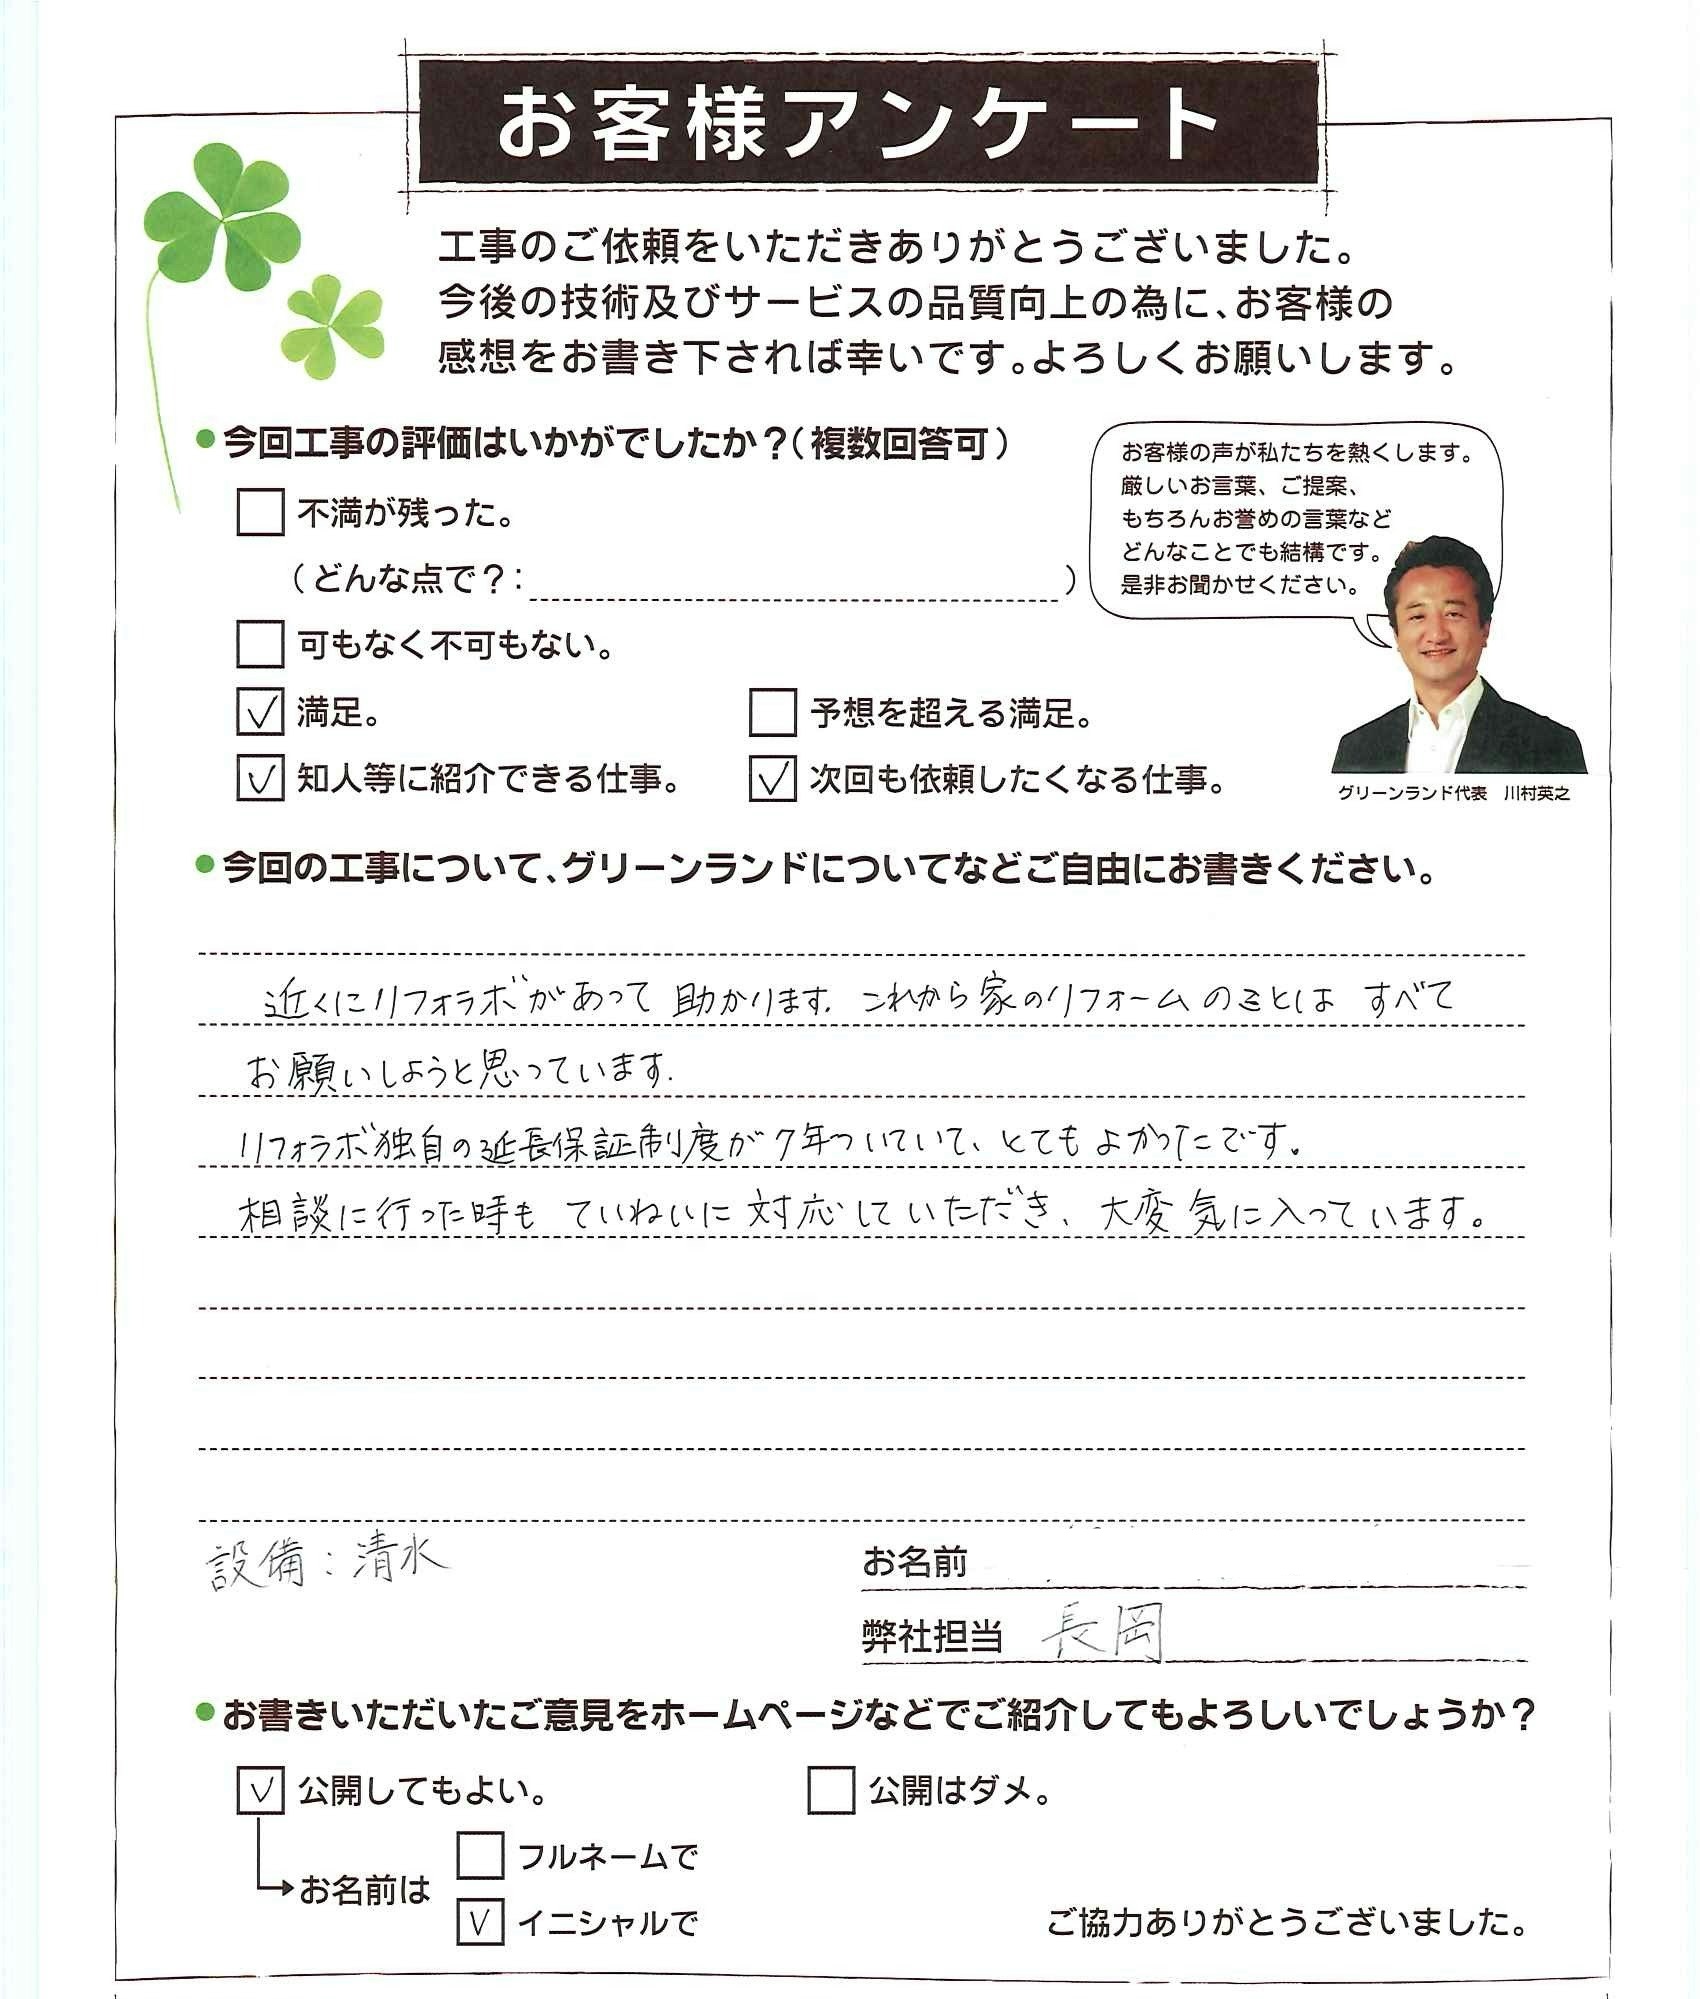 お客様アンケート
工事のご依頼をいただきありがとうございました。
今後の技術及びサービスの品質向上の為に、お客様の
感想をお書き下されば幸いです。よろしくお願いします。
●今回工事の評価はいかがでしたか？（複数回答可）
不満が残った。
（どんな点で？：）
可もなく不可もない。
☑ 満足。
予想を超える満足。
☑ 知人等に紹介できる仕事。
☑ 次回も依頼したくなる仕事。
お客様の声が私たちを熱くします。
厳しいお言葉、ご提案、
もちろんお誉めの言葉など
どんなことでも結構です。
是非お聞かせください。
グリーンランド代表　川村英之
●今回の工事について、グリーンランドについてなどご自由にお書きください。
近くにリフォラボがあって 助かります。これから家のリフォームのことは すべて
お願いしようと思っています。
リフォラボ独自の延長保証制度が7年ついていて、とてもよかったです。
相談に行った時も ていねいに対応していただき、大変気に入っています。
設備：清水
お名前
弊社担当 長岡
●お書きいただいたご意見をホームページなどでご紹介してもよろしいでしょうか？
☑ 公開してもよい。
公開はダメ。
お名前は
フルネームで
☑ イニシャルで
ご協力ありがとうございました。